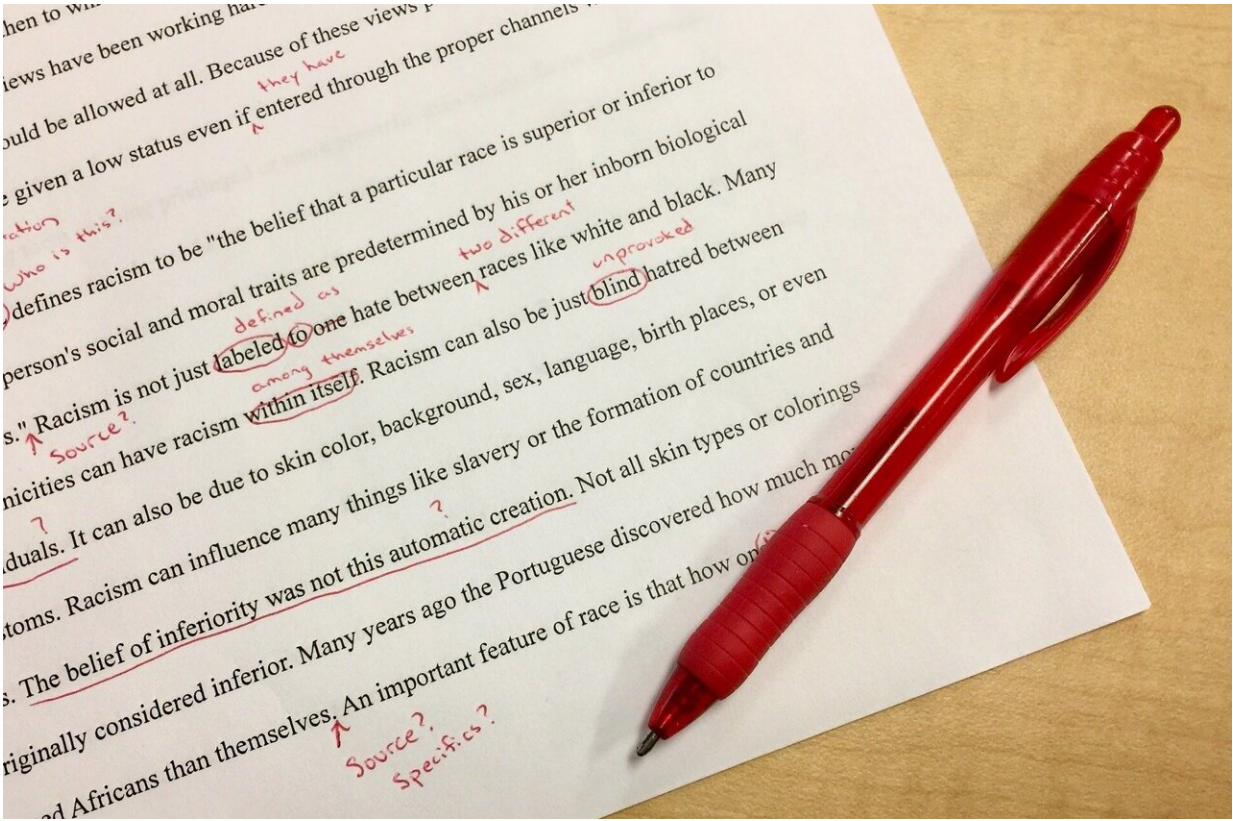 then to
iews have been working
ould be allowed at all. Because of these views
they have
given a low status even if ^ entered through the proper channels
ration
who is this?
defines racism to be "the belief that a particular race is superior or inferior to
person's social and moral traits are predetermined by his or her inborn biological
defined as
two different
s." Racism is not just labeled to one hate between ^ races like white and black. Many
Source?
among themselves
unprovoked
nicities can have racism within itself. Racism can also be just blind hatred between
?
duals. It can also be due to skin color, background, sex, language, birth places, or even
stoms. Racism can influence many things like slavery or the formation of countries and
?
s. The belief of inferiority was not this automatic creation. Not all skin types or colorings
riginally considered inferior. Many years ago the Portuguese discovered how much
ed Africans than themselves. An important feature of race is that how
Source?
Specifics?